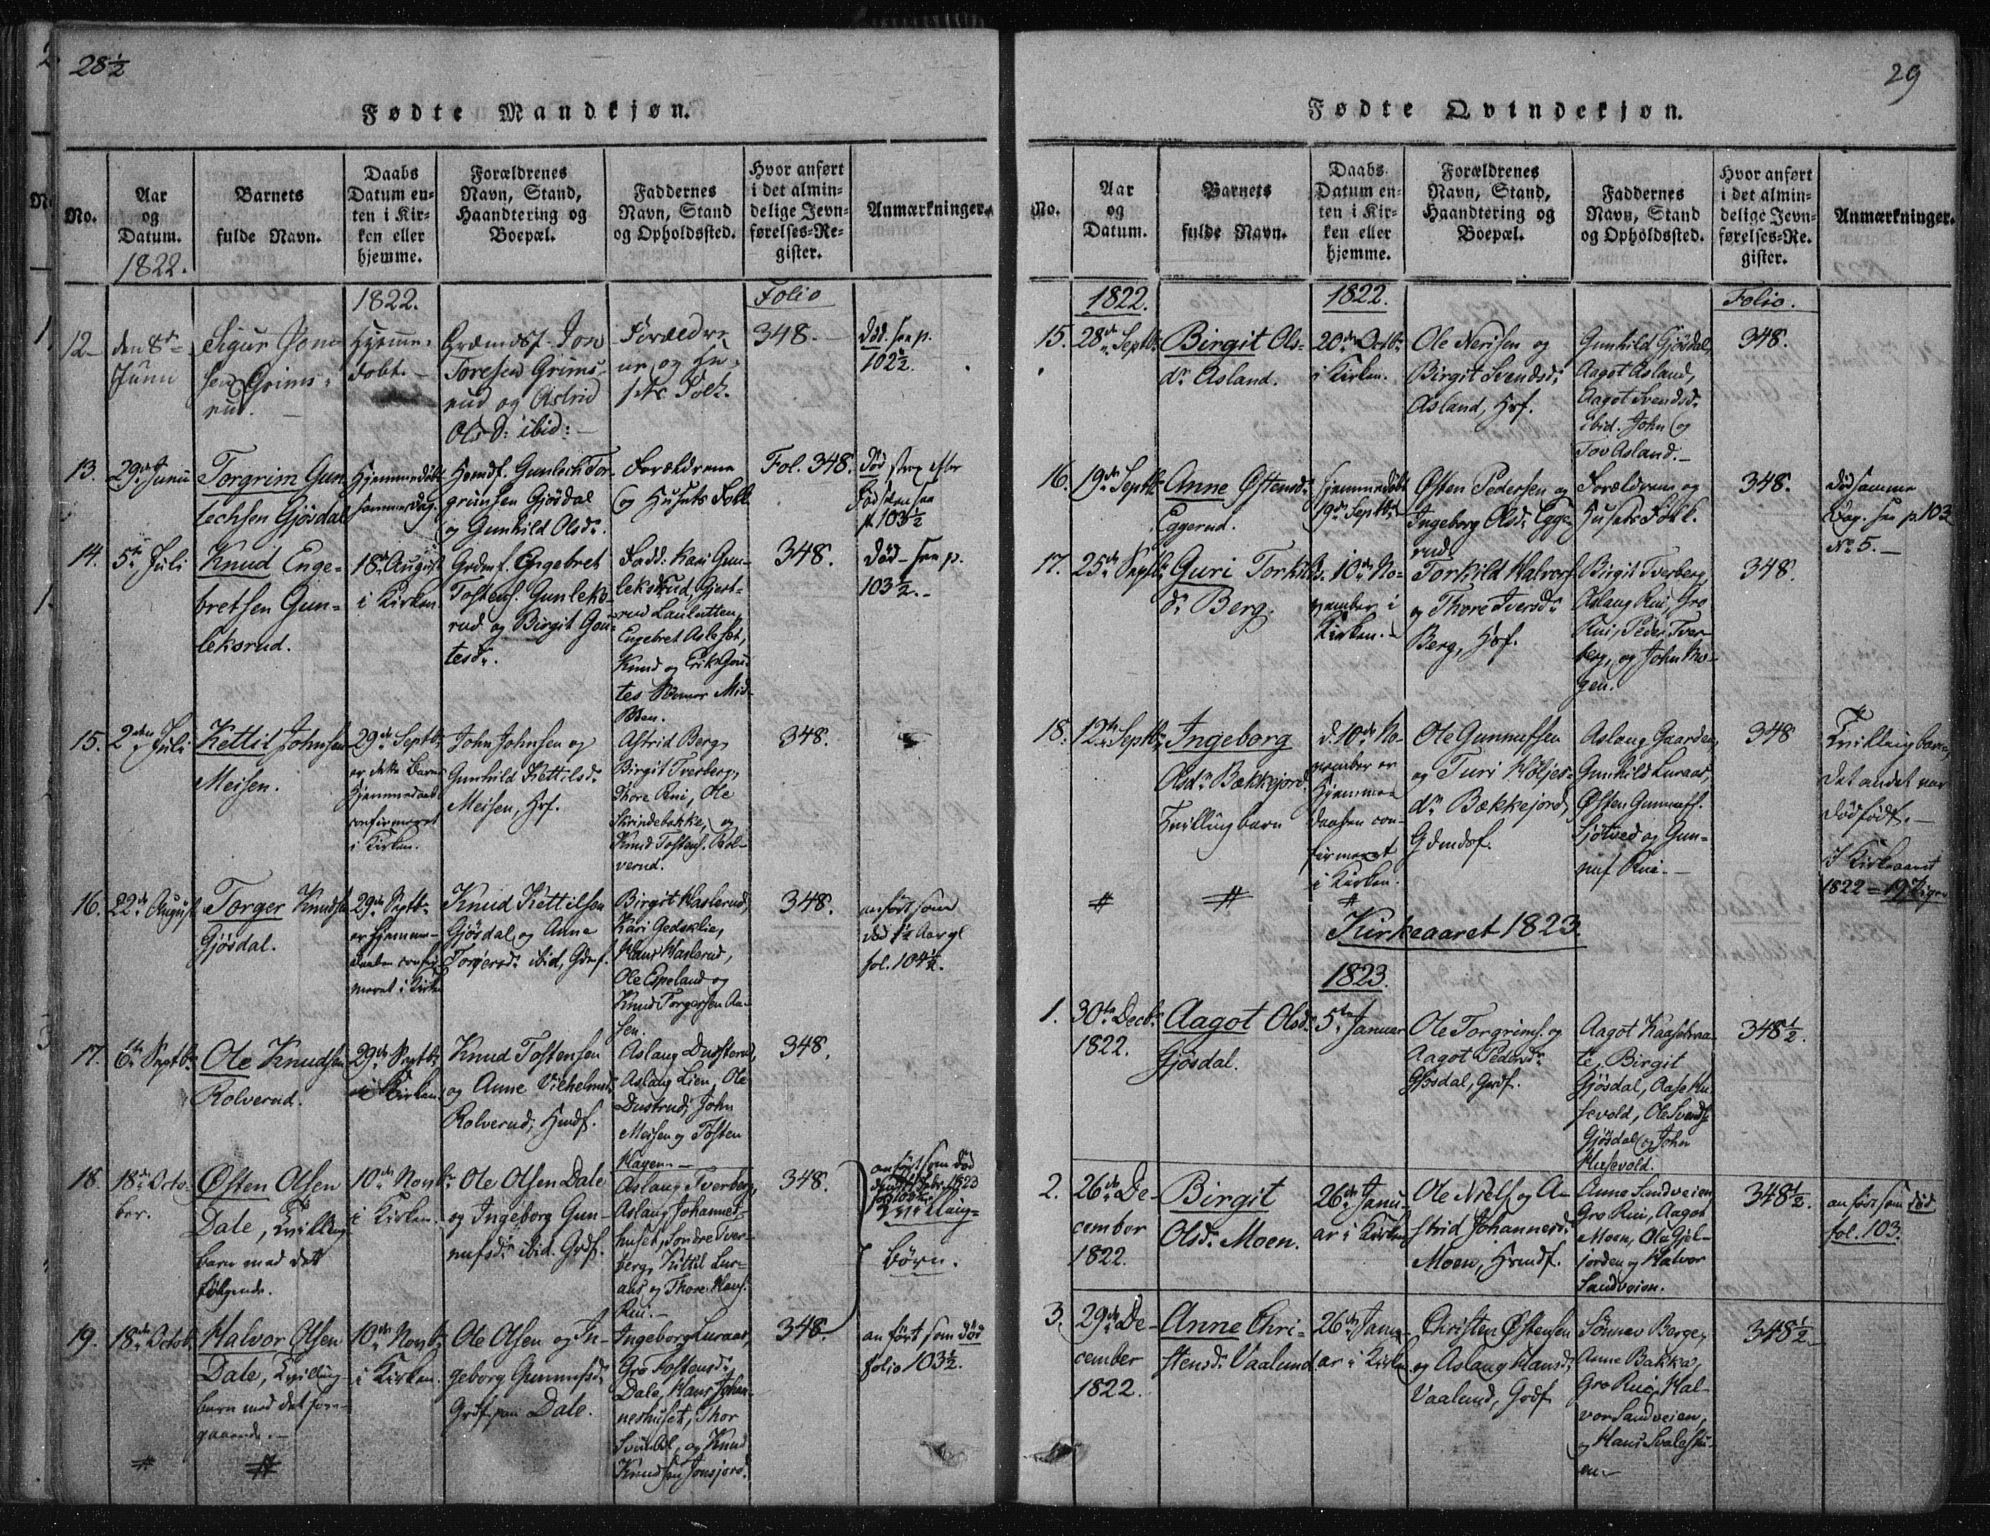 28½
Fødte Mandkjøn.
No.
Aar
og
Datum.
1822.
Barnets
fulde Navn.
Daabs
Datum en-
ten i Kir-
ken eller
hjemme.
Forældrenes
Navn, Stand,
Haandtering og
Boepæl.
Faddernes
Navn, Stand
og Opholdssted.
Hvor anført
i det almin-
delige Jevn-
førelses-Re-
gister.
Anmærkninger.
1822.
Folio
12
den 8de
Junii
Sigur Jon-
sen Grims-
rud.
Hjemme-
døbt.
Grændsf. Jon
Toresen Grims-
rud og Astrid
Olsd: ibid:
Forældre-
ne og Hu-
sets Folk.
348.
død. see p.
102½.
13.
29de Junii
Torgrim Gun-
lechsen Gjösdal
Hjemmedöbt
sammedag.
Huusmf. Gunlech Tor-
grimsen Gjösdal
og Gunhild Olsdr.
Forældrene
og Husets Folk
Fol. 348.
död strax efter
see
p. 103½
14.
5te Juli
Knud Enge-
bretsen Gun-
leksrud.
18de August
i Kirken
Grdmf. Engebret
Tostens. Gunleks-
rud og Birgit Gun-
tesdr.
Fadd: Kari Gun-
leksrud, Gjert-
rud Laulutten,
Engebret Aslefet,
Knud og Erik Gun-
tes Sönner Mid-
böen.
348.
död see p.
103½.
15.
2den Juli
Kettil Johnsen
Meisen.
29de Septbr
er dette Barns
Hjemmedaab
confirmeret
i Kirken.
John Johnsen og
Gunhild Kettilsdr
Meisen, Hrf.
Astrid Berg,
Birgit Tverberg,
Thore Rui, Ole
Skrindebakke, og
Knud Tostens. Rol-
verud.
348.
16.
22de August
Torger Knudsen
Gjösdal.
29de Septbr
er Hjemme-
daaben confir-
meret i Kirken
Knud Kettilsen
Gjösdal, og Anne
Torgersdr ibid, Gdmf.
Birgit Haslerud,
Kari Gedsklie,
Hans Haslerud,
Ole Espeland og
Knud Torgersen Aa-
sen.
348.
anført som
död ½ Aar gl
fol. 104½.
17.
6te Septbr
Ole Knudsen
Rolverud.
29de Septbr
i Kirken.
Knud Tostensen
og Anne Vilhelmsd.
Rolverud, Hmdf.
Aslaug Dustrud,
Aslaug Lien, Ole
Dustrud, John
Meisen og Tosten
Hagen.
348.
18.
18de Octo-
ber.
Østen Olsen
Dale, Tvilling-
barn med det
følgende.
10de Novbr
i Kirken.
Ole Olsen Dale
og Ingeborg Gun-
nufsdr ibid. Grdf.
Aslaug Tverberg,
Aslaug Johannes-
huset, Sondre Tver-
berg, Kittil Lur-
aas og Thore Hans.
Rui.
348.
anført som död
Tvilling-
börn.
19.
18de Octob.
Halvor Olsen
Dale, Tvilling-
barn med det fore-
gaaende.
10de Novbr
i Kirken.
Ole Olsen og In-
geborg Gunnufsdr
Grdf. paa Dale.
Ingeborg Luraas,
Gro Tostensdr
Dale, Hans Johan-
neshuset, Thor
og Knud
Knudsen Jonsjord.
348
anført som död
folio 103½.
#
#
29
Fødte Qvindekjøn.
No.
Aar
og
Datum.
Barnets
fulde Navn.
Daabs
Datum en-
ten i Kir-
ken eller
hjemme.
Forældrenes
Navn, Stand,
Haandtering og
Boepæl.
Faddernes
Navn, Stand
og Opholdssted.
Hvor anført
i det almin-
delige Jevn-
førelses-Re-
gister.
Anmærkninger.
1822.
1822.
Folio.
15.
28de Septbr
Birgit Ols-
dr Asland.
20de Octbr
i Kirken.
Ole Nerisen og
Birgit Svendsdr
Asland, Hrf.
Gunhild Gjösdal,
Aagot Asland,
Aagot Svendsdr
ibid. John og
Tov Asland.
348.
16.
19de Septbr
Anne Østensdr
Eggerud.
Hjemmedöbt
19de Septbr
Østen Pedersen og
Ingeborg Olsdr Egge-
rud.
Forældrene og
Husets Folk.
348.
död samme
Dag. see p. 103
No 5.
17.
25de Septbr
Guri Torkils-
dr Berg.
D. 10de No-
vember i
Kirken.
Torkild Halvors.
og Thore Iversdr
Berg, Hrf.
Birgit Tverberg,
Aslaug Rui, Gro
Rui, Peder Tver-
berg, og John Mo-
gen.
348.
18.
12te Septbr
Ingeborg
Olsdr Bækkejord.
Tvillingbarn
d. 10de No-
vember er
Hjemme-
daaben con-
firmeret
i Kirken.
Ole Gunnufsen
og Turi Höljes-
dr Bækkejord,
Gdmdsf.
Aslaug Gaarden,
Gunhild Luraas,
Østen Gunnufs.
Sjötved og Gun-
nuf Rui.
348
Tvillingbarn,
det andet var
dödfödt.
I Kirkeaaret
1822 = 19 Piger
#
#
#
Kirkeaaret 1823.
1823.
1.
30te Decbr
1822.
Aagot Olsdr
Gjösdal.
5te Januar
Ole Torgrims. og
Aagot Pedersdr
Gjösdal, Grdf.
Aagot Kaasebraa-
te, Birgit
Gjösdal, Aase Hu-
sevold, Ole Svends.
Gjösdal og John
Husevold.
348½.
2.
26de De-
cember
1822.
Birgit
Olsdr Moen.
26de Janu-
ar i Kirken
Ole Niels. og A-
strid Johannesdr
Moen, Hmdf.
Anne Sandveien
Gro Rui, Aagot
Moen, Ole Gjel-
jorden og Halvor
Sandveien.
348½.
anført som död
fol. 103.
3.
29de De-
cember
1822.
Anne Chri-
stensdr Vaalund
26de Janu-
ar i Kirken
Christen Østensen
og Aslaug Hansdr
Vaalund, Grdf.
Sönnev Berge,
Anne Bakka,
Gro Rui, Hal-
vor Sandveien,
og Hans Svalestu-
en.
348½